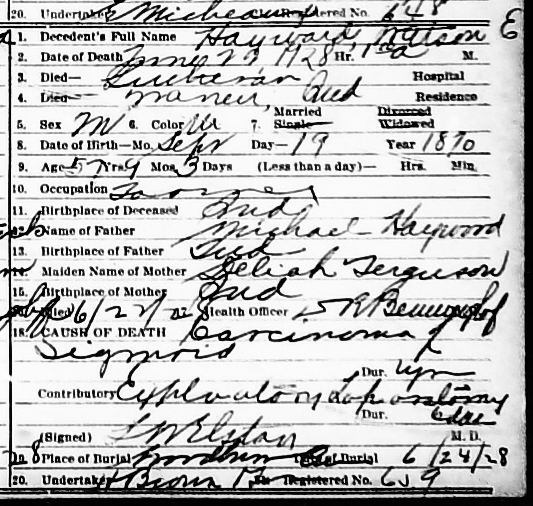 20. Undertaker E Micheau Registered No. 648
1. Decedent's Full Name Hayward Watson E
2. Date of Death June 22, 1928 Hr. 10 a M.
3. Died— Lutheran Hospital
4. Died— Maner, Ind Residence
5. Sex M 6. Color W 7. Married Single Divorced Widowed
8. Date of Birth—Mo. Sept Day— 19 Year 1870
9. Age 57 Yrs. 9 Mos. 3 Days (Less than a day)— Hrs. Min.
10. Occupation Farmer
11. Birthplace of Deceased Ind
12. Name of Father Michael Haywood
13. Birthplace of Father Ind
14. Maiden Name of Mother Deliah Ferguson
15. Birthplace of Mother Ind
Filed 6/22/ Health Officer
18. CAUSE OF DEATH Carcinoma of
Sigmoid
Dur. 4 yrs
Contributory Exploratory Laparotomy
Dur. 6 da
(Signed) M. D.
19. Place of Burial Date of Burial 6/24/28
20. Undertaker Brown Registered No. 659